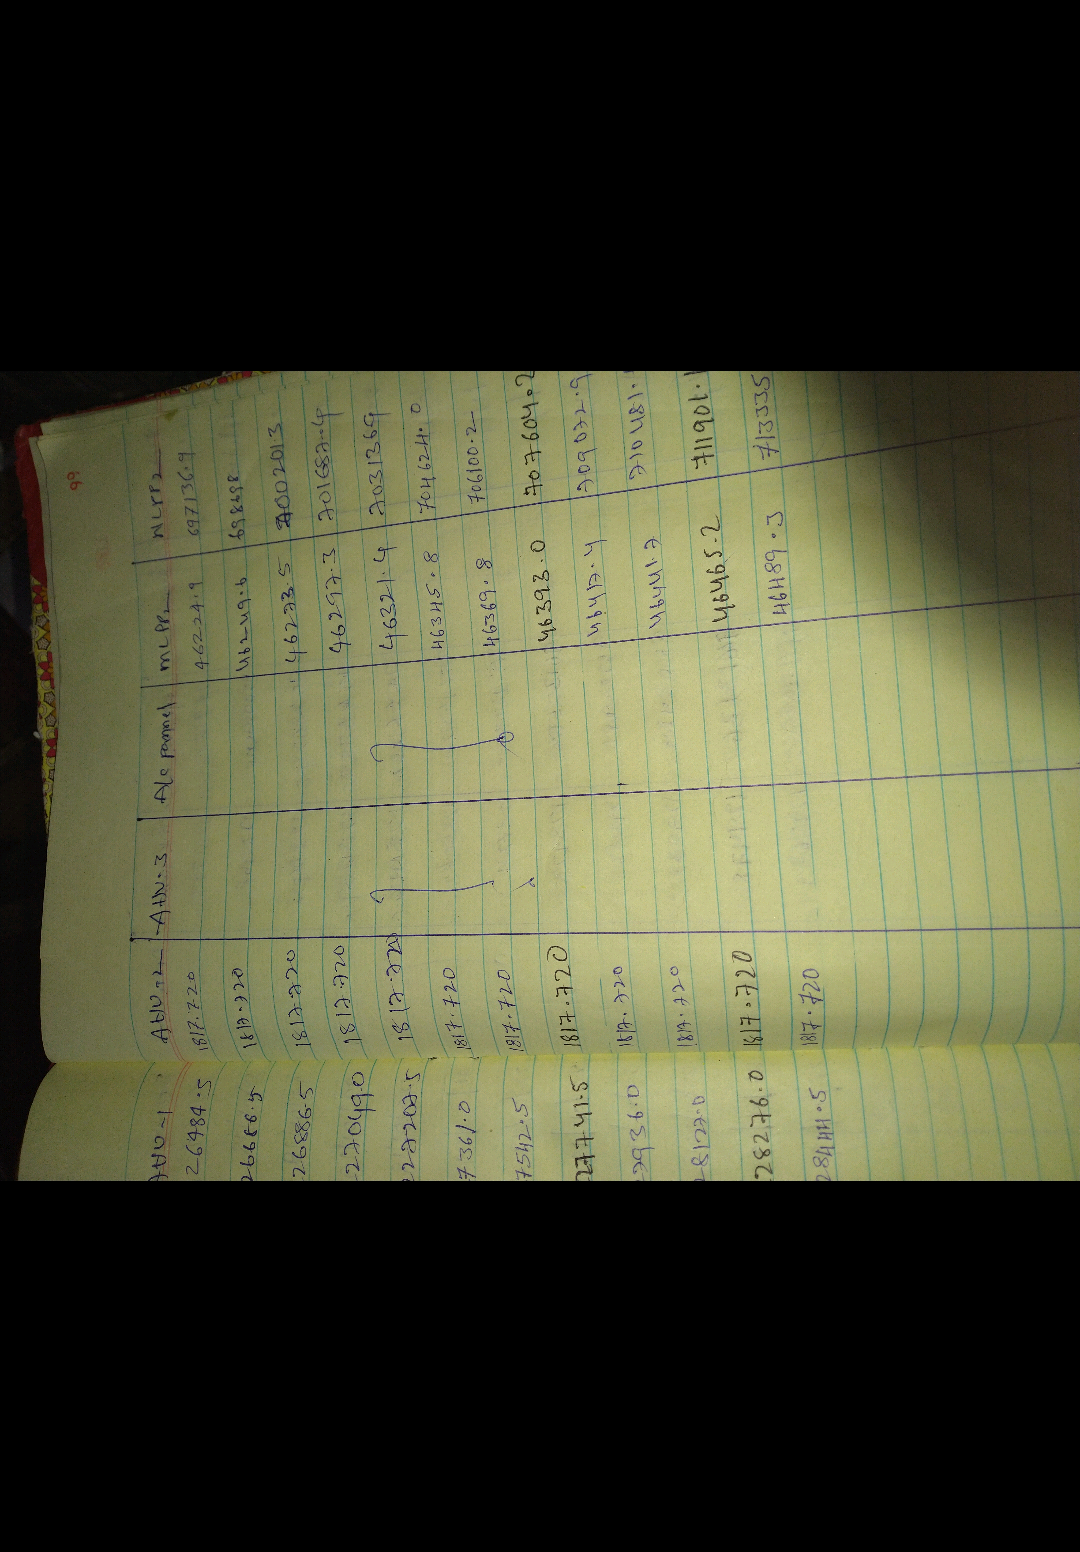 99
AHU-1 AHU-2 AHU.3 A/c pannel MLPP2 WLPP2
26484.5 1817.720 46224.9 697136.9
26686.5 1817.720 46249.6 698698
26886.5 1817.720 46273.5 7002013
27049.0 1817.720 46297.3 701687.4
27207.5 1817.720 46321.4 7031369
7361.0 1817.720 46345.8 704624.0
7542.5 1817.720 46369.8 706100.2
27741.5 1817.720 46393.0 707604.2
7936.0 1817.720 46417.4 709072.9
28127.0 1817.720 46441.7 710481.
28276.0 1817.720 46465.2 711901.1
28444.5 1817.720 46489.3 713335